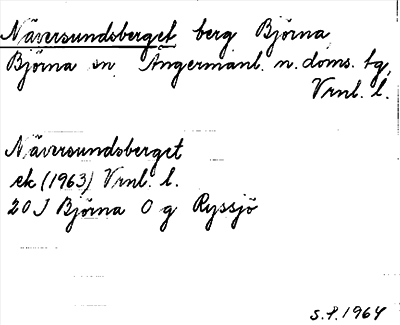 Näversundsberget berg Björna
Björna sn. Ångermanl. n. doms. tg,
Vrnl. l.
Näversundsberget
ek (1963) Vrnl. l.
20 J Björna O g Ryssjö
s.f. 1964